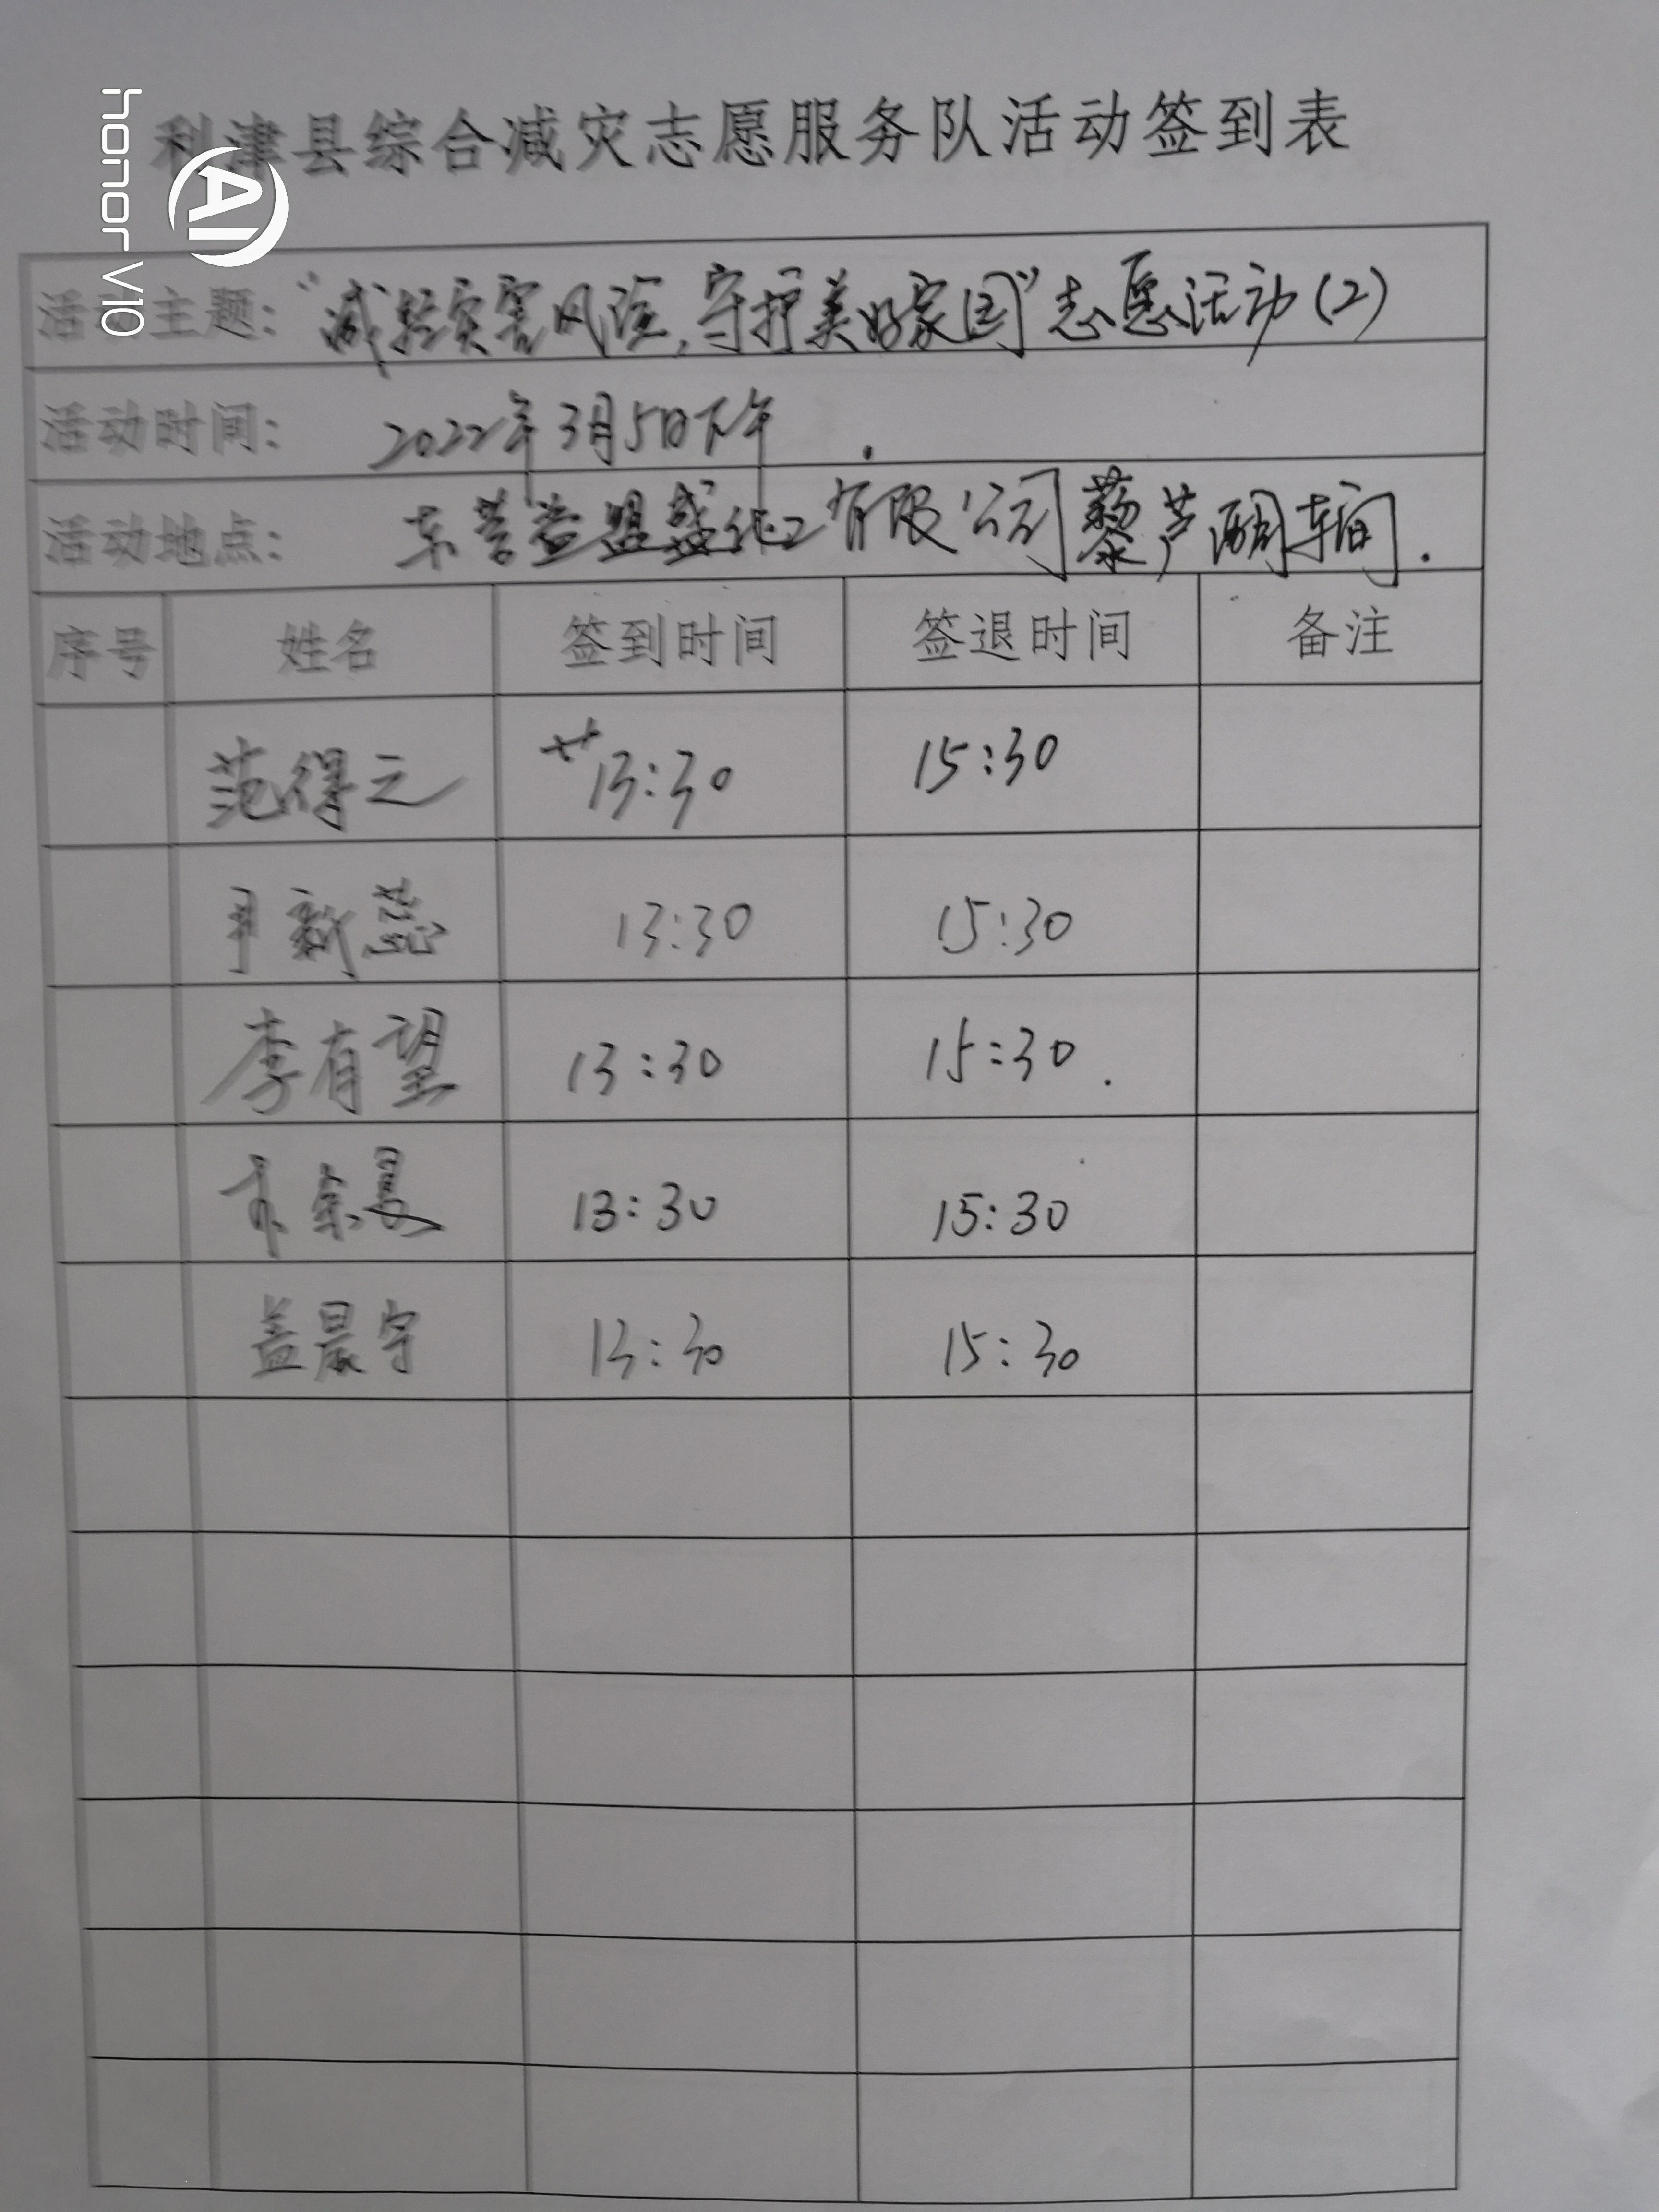 利津县综合减灾志愿服务队活动签到表
honor V10
AI
活动主题：“减轻灾害风险，守护美好家园”志愿活动(2)
活动时间： 2022年3月5日下午
活动地点： 东营益盟盛化工有限公司藜芦酮车间.
序号 姓名 签到时间 签退时间 备注
范得元 13:30 15:30
新蕊 13:30 15:30
李有望 13:30 15:30.
13:30 15:30
盖晨宇 13:30 15:30